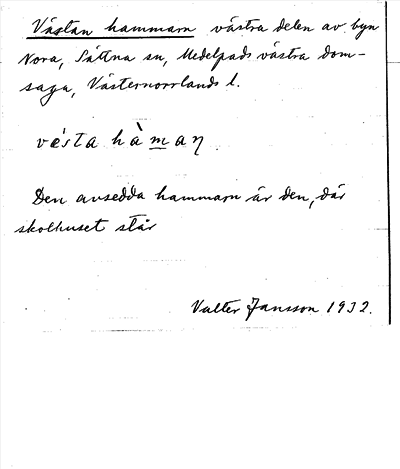 Västan hammarn västra delen av byn
Nora, Sättna sn, Medelpads västra dom-
saga, Västernorrlands l.
vèsta hàmaŋ
Den avsedda hammarn är den, där
skolhuset står
Valter Jansson 1932.